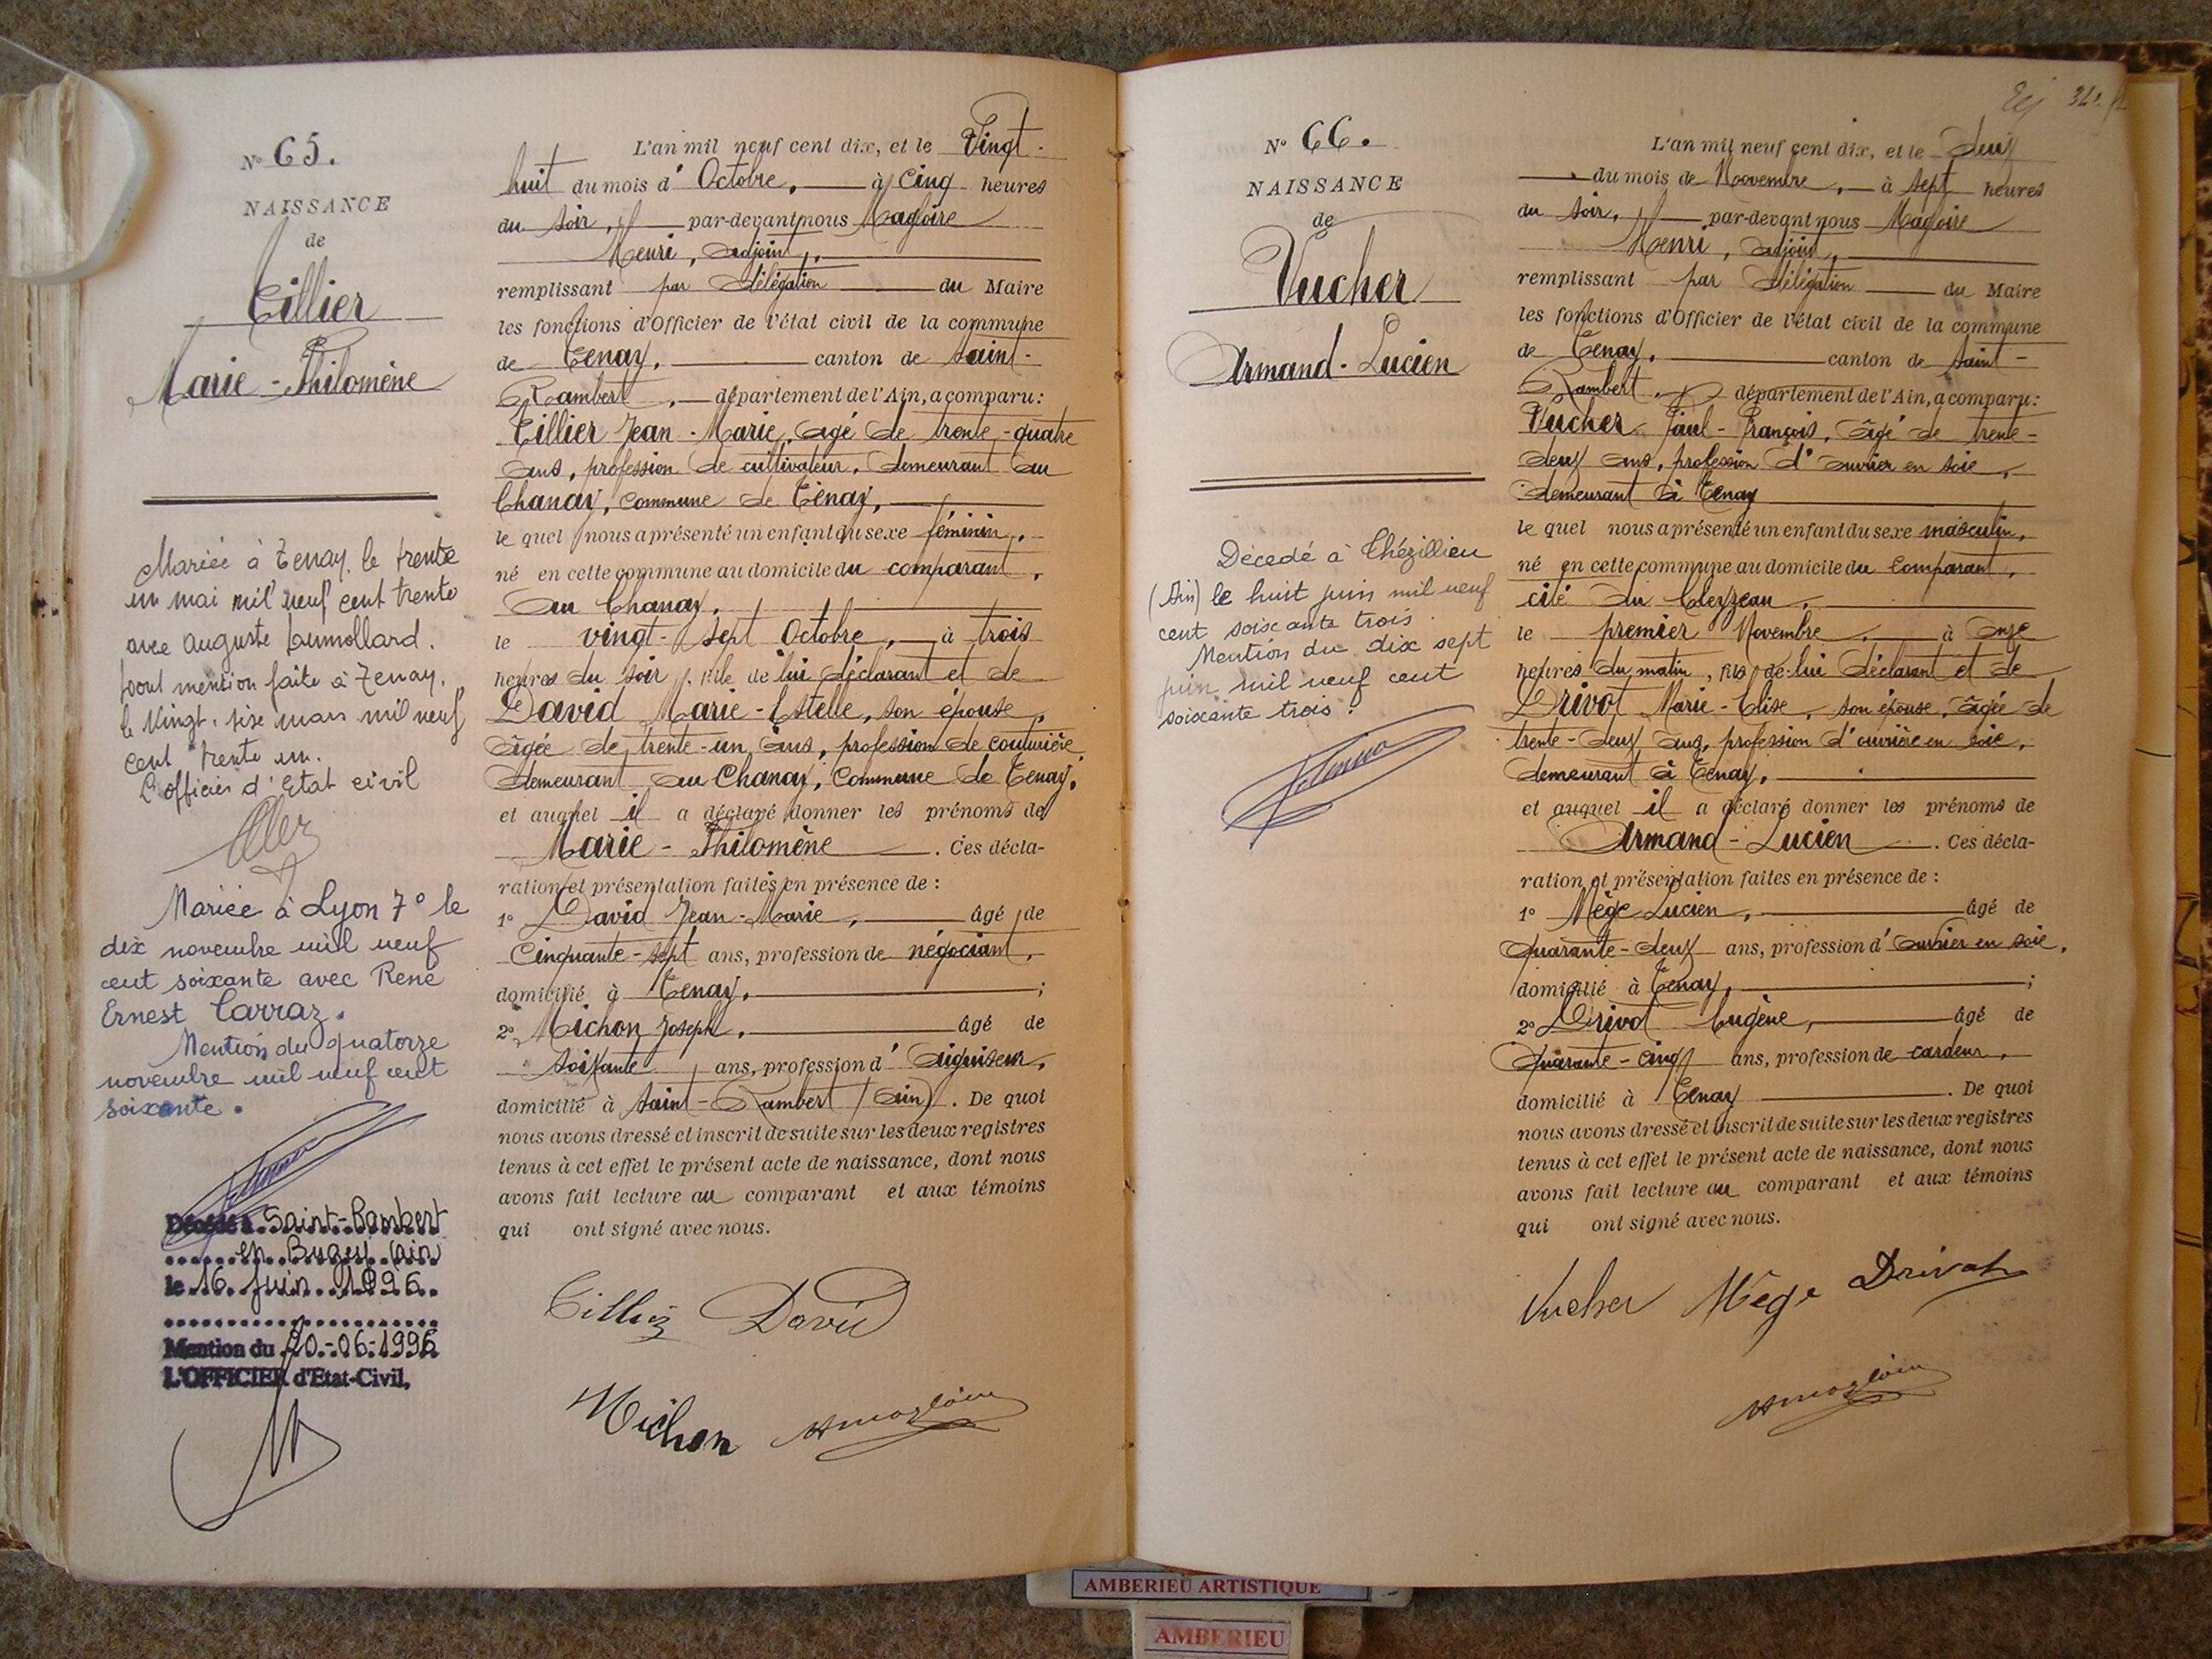 Nº 65.
NAISSANCE
de
Tillier
Marie-Philomène
Mariée à Tenay, le trente
un mai mil neuf cent trente
avec Auguste Dumollard.
Dont mention faite à Tenay,
le vingt-six mars mil neuf
cent trente un.
L'officier d'Etat civil
Mariée à Lyon 7º le
dix novembre mil neuf
cent soixante avec René
Ernest Carraz.
Mention du quatorze
novembre mil neuf cent
soixante.
Décédé à Saint-Rambert
en Bugey (Ain)
le 16 Juin 1996
Mention du 20-06-1996
L'OFFICIER d'Etat-Civil,
L'an mil neuf cent dix, et le Vingt-
huit du mois d'Octobre, à cinq heures
du soir, par-devant nous Magloire
Henri, adjoint,
remplissant par délégation du Maire
les fonctions d'Officier de l'état civil de la commune
de Tenay, canton de Saint-
Rambert, département de l'Ain, a comparu:
Tillier Jean-Marie, âgé de trente-quatre
ans, profession de cultivateur, demeurant au
Chanay, commune de Tenay,
le quel nous a présenté un enfant du sexe féminin,
né en cette commune au domicile du comparant,
au Chanay,
le vingt-sept Octobre, à trois
heures du soir, fille de lui déclarant et de
David Marie-Estelle, son épouse,
âgée de trente-un ans, profession de couturière
demeurant au Chanay, commune de Tenay,
et auquel il a déclaré donner les prénoms de
Marie-Philomène. Ces décla-
ration et présentation faites en présence de:
1º David Jean-Marie, âgé de
Cinquante-sept ans, profession de négociant,
domicilié à Tenay, ;
2º Michon Joseph, âgé de
soixante ans, profession d'aiguiseur,
domicilié à Saint-Rambert (Ain). De quoi
nous avons dressé et inscrit de suite sur les deux registres
tenus à cet effet le présent acte de naissance, dont nous
avons fait lecture au comparant et aux témoins
qui ont signé avec nous.
Tillier David
Michon Hmagloire
Nº 66.
NAISSANCE
de
Vucher
Armand-Lucien
Décédé à Chézillieu
(Ain) le huit juin mil neuf
cent soixante trois.
Mention du dix sept
juin mil neuf cent
soixante trois.
L'an mil neuf cent dix, et le deux
du mois de Novembre, à sept heures
du soir, par-devant nous Magloire
Henri, adjoint,
remplissant par délégation du Maire
les fonctions d'Officier de l'état civil de la commune
de Tenay, canton de Saint-
Rambert, département de l'Ain, a comparu:
Vucher Paul-François, âgé de trente-
deux ans, profession d'ouvrier en soie,
demeurant à Tenay
le quel nous a présenté un enfant du sexe masculin,
né en cette commune au domicile du comparant,
cité du Clezeau,
le premier Novembre, à onze
heures du matin, fils de lui déclarant et de
Drivot Marie-Elise, son épouse, âgée de
trente-deux ans, profession d'ouvrière en soie,
demeurant à Tenay,
et auquel il a déclaré donner les prénoms de
Armand-Lucien. Ces décla-
ration et présentation faites en présence de:
1º Mège Lucien, âgé de
quarante-deux ans, profession d'ouvrier en soie,
domicilié à Tenay, ;
2º Drivot Eugène, âgé de
quarante-cinq ans, profession de cardeur,
domicilié à Tenay. De quoi
nous avons dressé et inscrit de suite sur les deux registres
tenus à cet effet le présent acte de naissance, dont nous
avons fait lecture au comparant et aux témoins
qui ont signé avec nous.
Vucher Mège Drivot
Hmagloire
AMBERIEU ARTISTIQUE
AMBERIEU